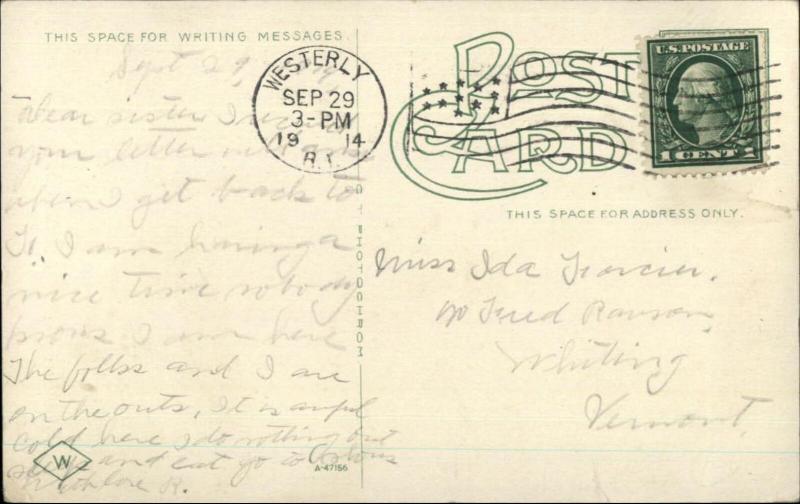 THIS SPACE FOR WRITING MESSAGES
Sept 29,
Dear sister I
your letter will
when I get back to
I am having a
nice time nobody
knows I am here
The folks and I are
on the outs, It is awful
cold here I do nothing but
sleep and eat go to
With love R.
W
A-47156
PHOTOCHROM
WESTERLY
SEP 29
3-PM
1914
R.I.
POST
CARD
U.S. POSTAGE
1 CENT 1
THIS SPACE FOR ADDRESS ONLY.
Miss Ida
℅ Fred Ranson,
Whiting
Vermont.